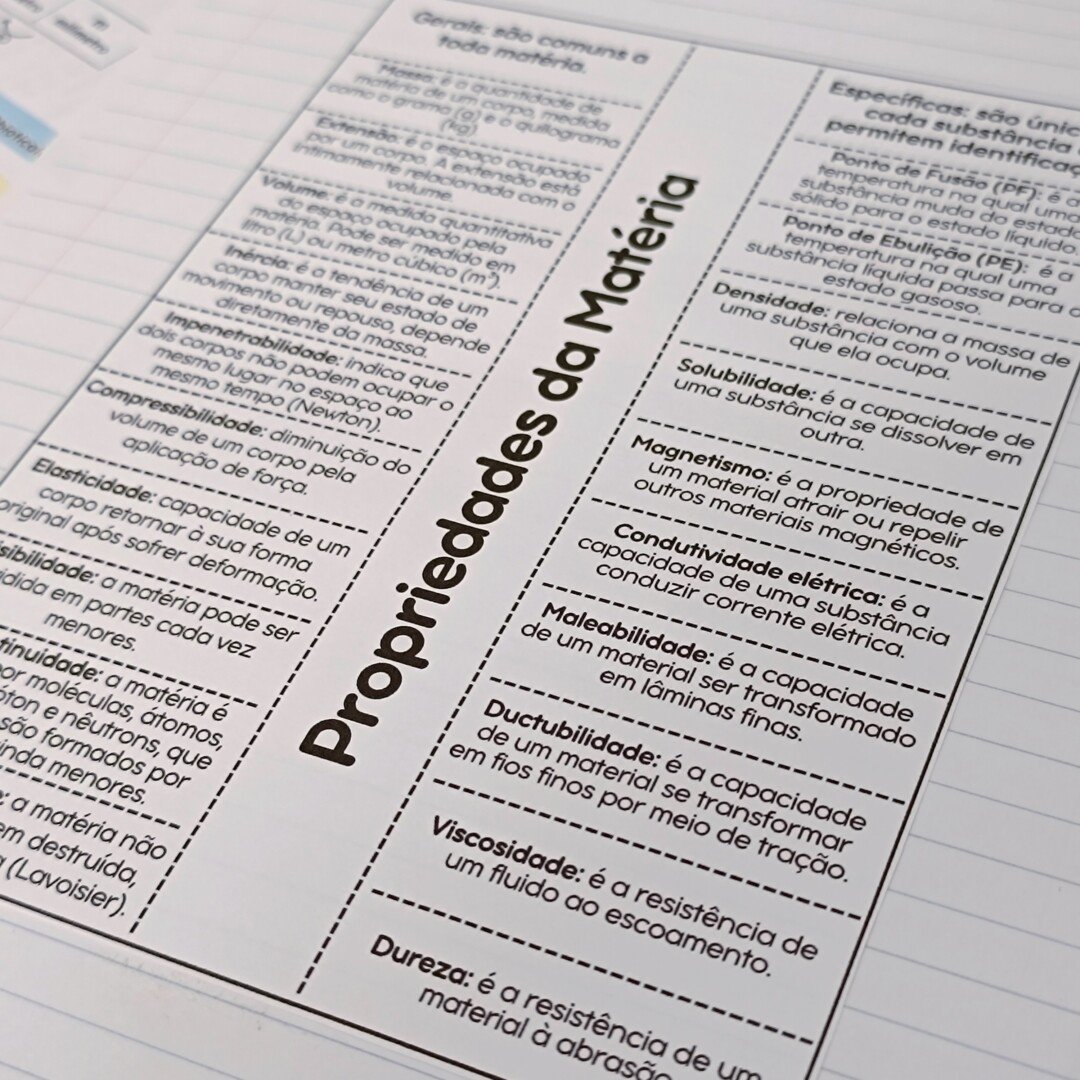 Gerais: são comuns a
toda matéria.
Massa: é a quantidade de
matéria de um corpo, medida
como o grama (g) e o quilograma
(kg).
Extensão: é o espaço ocupado
por um corpo. A extensão está
intimamente relacionada com o
volume.
Volume: é a medida quantitativa
do espaço ocupado pela
matéria. Pode ser medido em
litro (L) ou metro cúbico (m³).
Inércia: é a tendência de um
corpo manter seu estado de
movimento ou repouso, depende
diretamente da massa.
Impenetrabilidade: indica que
dois corpos não podem ocupar o
mesmo lugar no espaço ao
mesmo tempo (Newton).
Compressibilidade: diminuição do
volume de um corpo pela
aplicação de força.
Elasticidade: capacidade de um
corpo retornar à sua forma
original após sofrer deformação.
sibilidade: a matéria pode ser
idida em partes cada vez
menores.
tinuidade: a matéria é
por moléculas, átomos,
óton e nêutrons, que
são formados por
inda menores.
: a matéria não
em destruída,
(Lavoisier).
Propriedades da Matéria
Específicas: são únic
cada substância
permitem identificaç
Ponto de Fusão (PF): é a
temperatura na qual uma
substância muda do estado
sólido para o estado líquido
Ponto de Ebulição (PE): é a
temperatura na qual uma
substância líquida passa para o
estado gasoso.
Densidade: relaciona a massa de
uma substância com o volume
que ela ocupa.
Solubilidade: é a capacidade de
uma substância se dissolver em
outra.
Magnetismo: é a propriedade de
um material atrair ou repelir
outros materiais magnéticos.
Condutividade elétrica: é a
capacidade de uma substância
conduzir corrente elétrica.
Maleabilidade: é a capacidade
de um material ser transformado
em lâminas finas.
Ductubilidade: é a capacidade
de um material se transformar
em fios finos por meio de tração.
Viscosidade: é a resistência de
um fluido ao escoamento.
Dureza: é a resistência de um
material à abrasão